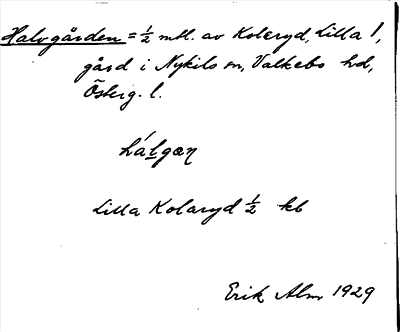 Halvgården = ½ mtl. av Kolaryd, Lilla 1,
gård i Nykils sn, Valkebo hd,
Österg. l.
Lilla Kolaryd ½ kb
Erik Alm 1929